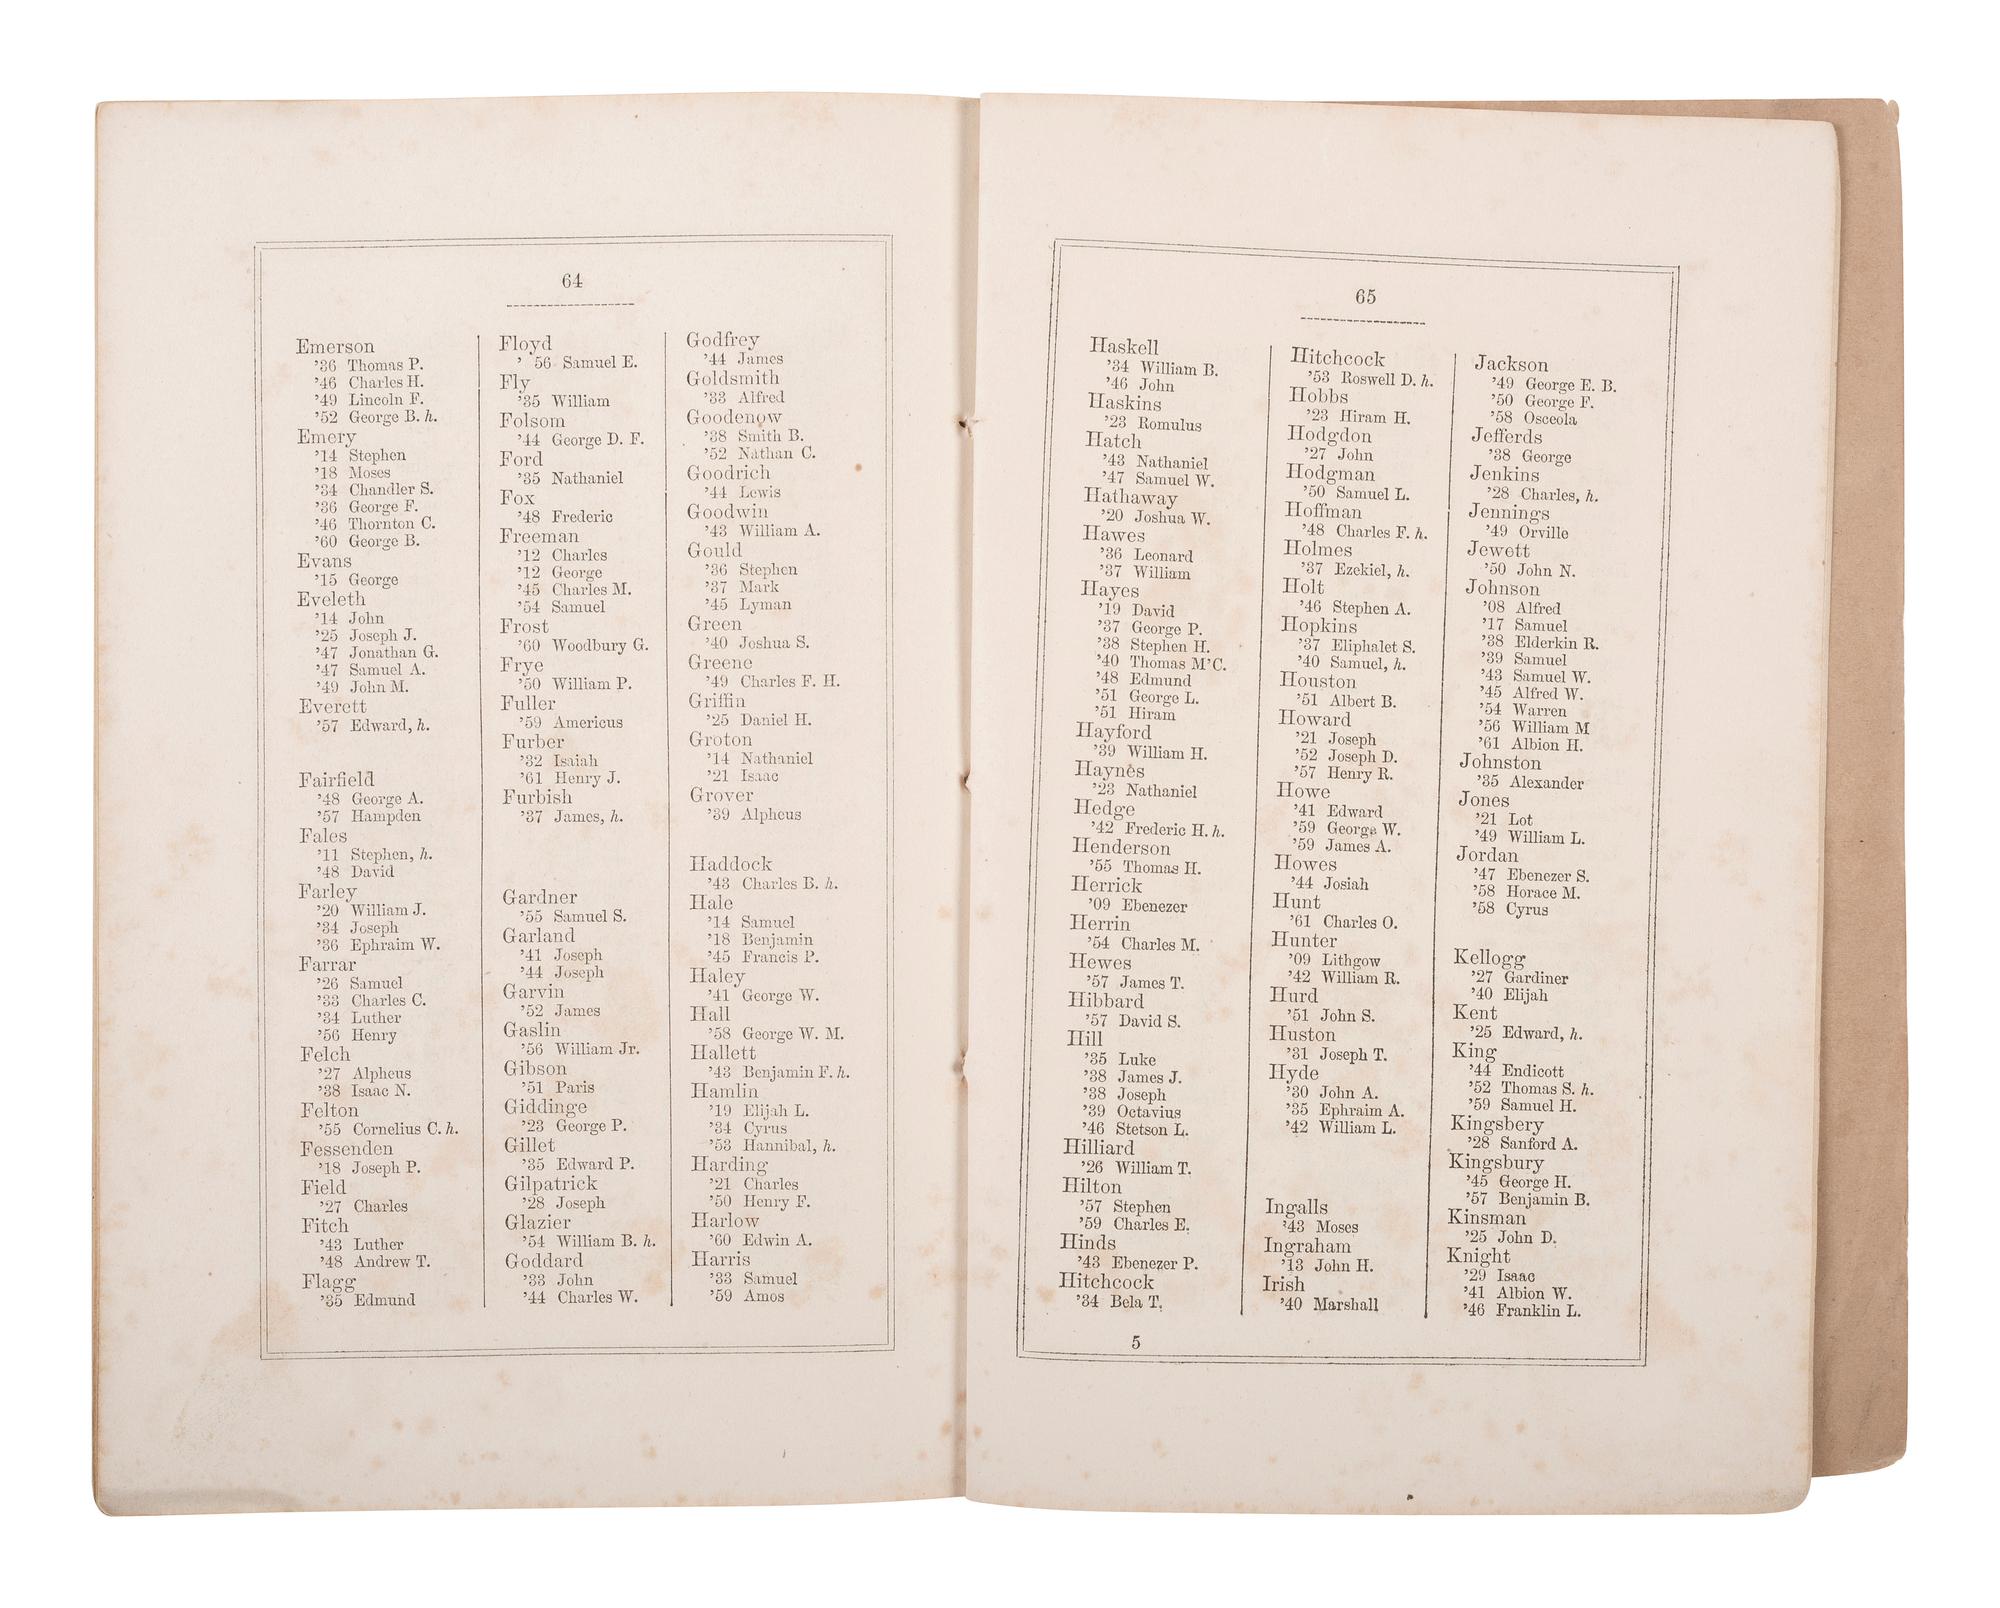 64
Emerson
’36 Thomas P.
’46 Charles H.
’49 Lincoln F.
’52 George B. h.
Emery
’14 Stephen
’18 Moses
’34 Chandler S.
’36 George F.
’46 Thornton C.
’60 George B.
Evans
’15 George
Eveleth
’14 John
’25 Joseph J.
’47 Jonathan G.
’47 Samuel A.
’49 John M.
Everett
’57 Edward, h.
Fairfield
’48 George A.
’57 Hampden
Fales
’11 Stephen, h.
’48 David
Farley
’20 William J.
’34 Joseph
’36 Ephraim W.
Farrar
’26 Samuel
’33 Charles C.
’34 Luther
’56 Henry
Felch
’27 Alpheus
’38 Isaac N.
Felton
’55 Cornelius C. h.
Fessenden
’18 Joseph P.
Field
’27 Charles
Fitch
’43 Luther
’48 Andrew T.
Flagg
’35 Edmund
Floyd
’ 56 Samuel E.
Fly
’35 William
Folsom
’44 George D. F.
Ford
’35 Nathaniel
Fox
’48 Frederic
Freeman
’12 Charles
’12 George
’45 Charles M.
’54 Samuel
Frost
’60 Woodbury G.
Frye
’50 William P.
Fuller
’59 Americus
Furber
’32 Isaiah
’61 Henry J.
Furbish
’37 James, h.
Gardner
’55 Samuel S.
Garland
’41 Joseph
’44 Joseph
Garvin
’52 James
Gaslin
’56 William Jr.
Gibson
’51 Paris
Giddinge
’23 George P.
Gillet
’35 Edward P.
Gilpatrick
’28 Joseph
Glazier
’54 William B. h.
Goddard
’33 John
’44 Charles W.
Godfrey
’44 James
Goldsmith
’33 Alfred
Goodenow
’38 Smith B.
’52 Nathan C.
Goodrich
’44 Lewis
Goodwin
’43 William A.
Gould
’36 Stephen
’37 Mark
’45 Lyman
Green
’40 Joshua S.
Greene
’49 Charles F. H.
Griffin
’25 Daniel H.
Groton
’14 Nathaniel
’21 Isaac
Grover
’39 Alpheus
Haddock
’43 Charles B. h.
Hale
’14 Samuel
’18 Benjamin
’45 Francis P.
Haley
’41 George W.
Hall
’58 George W. M.
Hallett
’43 Benjamin F. h.
Hamlin
’19 Elijah L.
’34 Cyrus
’53 Hannibal, h.
Harding
’21 Charles
’50 Henry F.
Harlow
’60 Edwin A.
Harris
’33 Samuel
’59 Amos
65
Haskell
’34 William B.
’46 John
Haskins
’23 Romulus
Hatch
’43 Nathaniel
’47 Samuel W.
Hathaway
’20 Joshua W.
Hawes
’36 Leonard
’37 William
Hayes
’19 David
’37 George P.
’38 Stephen H.
’40 Thomas M’C.
’48 Edmund
’51 George L.
’51 Hiram
Hayford
’39 William H.
Haynes
’23 Nathaniel
Hedge
’42 Frederic H. h.
Henderson
’55 Thomas H.
Herrick
’09 Ebenezer
Herrin
’54 Charles M.
Hewes
’57 James T.
Hibbard
’57 David S.
Hill
’35 Luke
’38 James J.
’38 Joseph
’39 Octavius
’46 Stetson L.
Hilliard
’26 William T.
Hilton
’57 Stephen
’59 Charles E.
Hinds
’43 Ebenezer P.
Hitchcock
’34 Bela T.
Hitchcock
’53 Roswell D. h.
Hobbs
’23 Hiram H.
Hodgdon
’27 John
Hodgman
’50 Samuel L.
Hoffman
’48 Charles F. h.
Holmes
’37 Ezekiel, h.
Holt
’46 Stephen A.
Hopkins
’37 Eliphalet S.
’40 Samuel, h.
Houston
’51 Albert B.
Howard
’21 Joseph
’52 Joseph D.
’57 Henry R.
Howe
’41 Edward
’59 George W.
’59 James A.
Howes
’44 Josiah
Hunt
’61 Charles O.
Hunter
’09 Lithgow
’42 William R.
Hurd
’51 John S.
Huston
’31 Joseph T.
Hyde
’30 John A.
’35 Ephraim A.
’42 William L.
Ingalls
’43 Moses
Ingraham
’13 John H.
Irish
’40 Marshall
Jackson
’49 George E. B.
’50 George F.
’58 Osceola
Jefferds
’38 George
Jenkins
’28 Charles, h.
Jennings
’49 Orville
Jewett
’50 John N.
Johnson
’08 Alfred
’17 Samuel
’38 Elderkin R.
’39 Samuel
’43 Samuel W.
’45 Alfred W.
’54 Warren
’56 William M
’61 Albion H.
Johnston
’35 Alexander
Jones
’21 Lot
’49 William L.
Jordan
’47 Ebenezer S.
’58 Horace M.
’58 Cyrus
Kellogg
’27 Gardiner
’40 Elijah
Kent
’25 Edward, h.
King
’44 Endicott
’52 Thomas S. h.
’59 Samuel H.
Kingsbery
’28 Sanford A.
Kingsbury
’45 George H.
’57 Benjamin B.
Kinsman
’25 John D.
Knight
’29 Isaac
’41 Albion W.
’46 Franklin L.
5